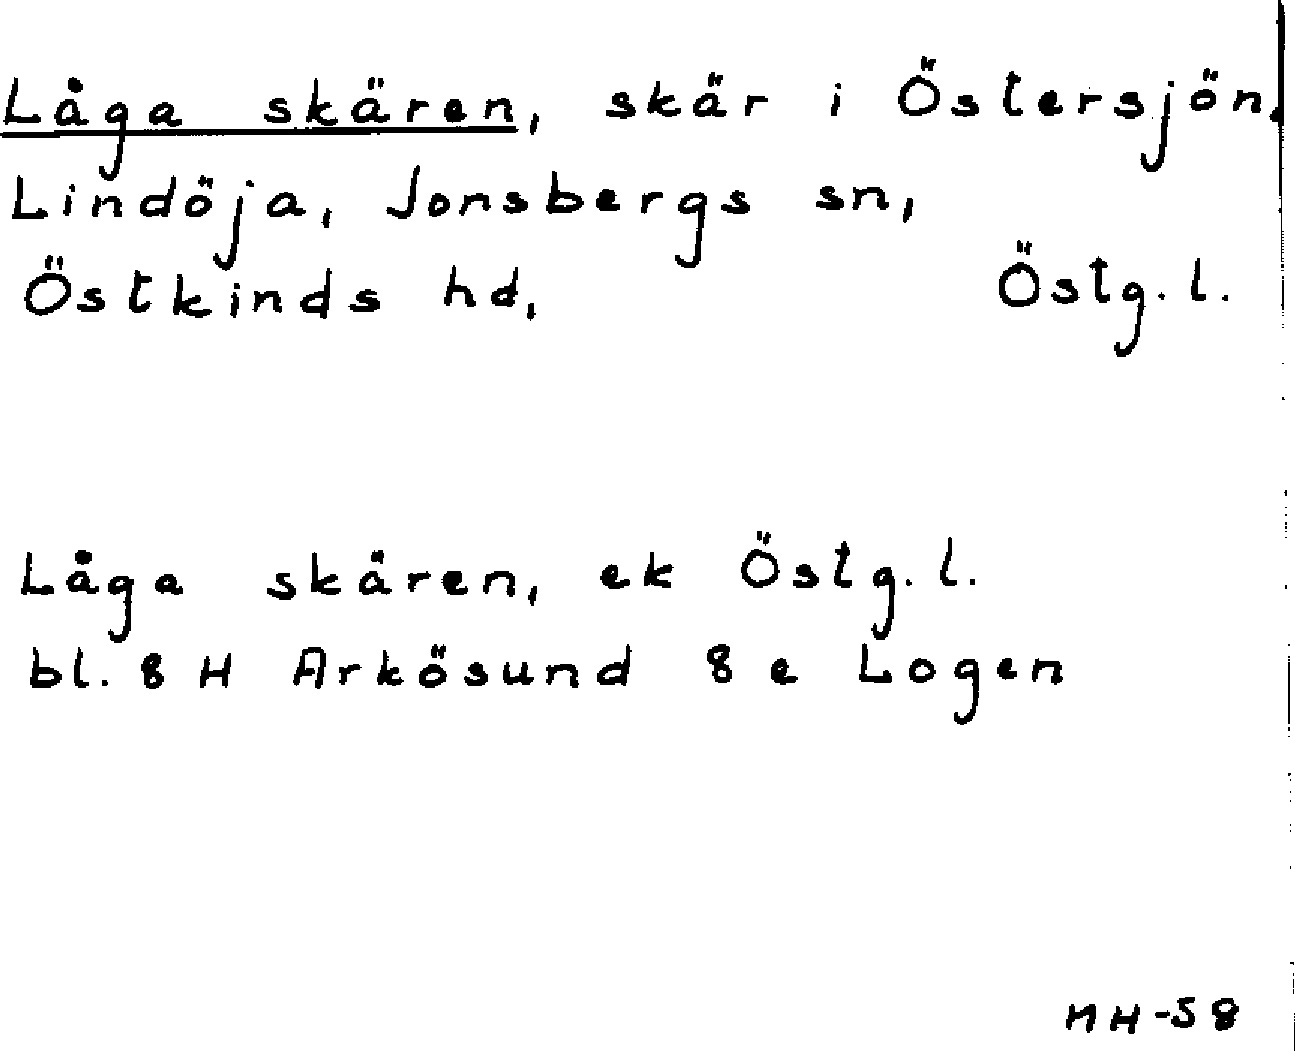 Låga skären, skär i Östersjön,
Lindöja, Jonsbergs sn,
Östkinds hd, Östg. l.
Låga skären, ek Östg. l.
bl. 8 H Arkösund 8 e Logen
MH-58